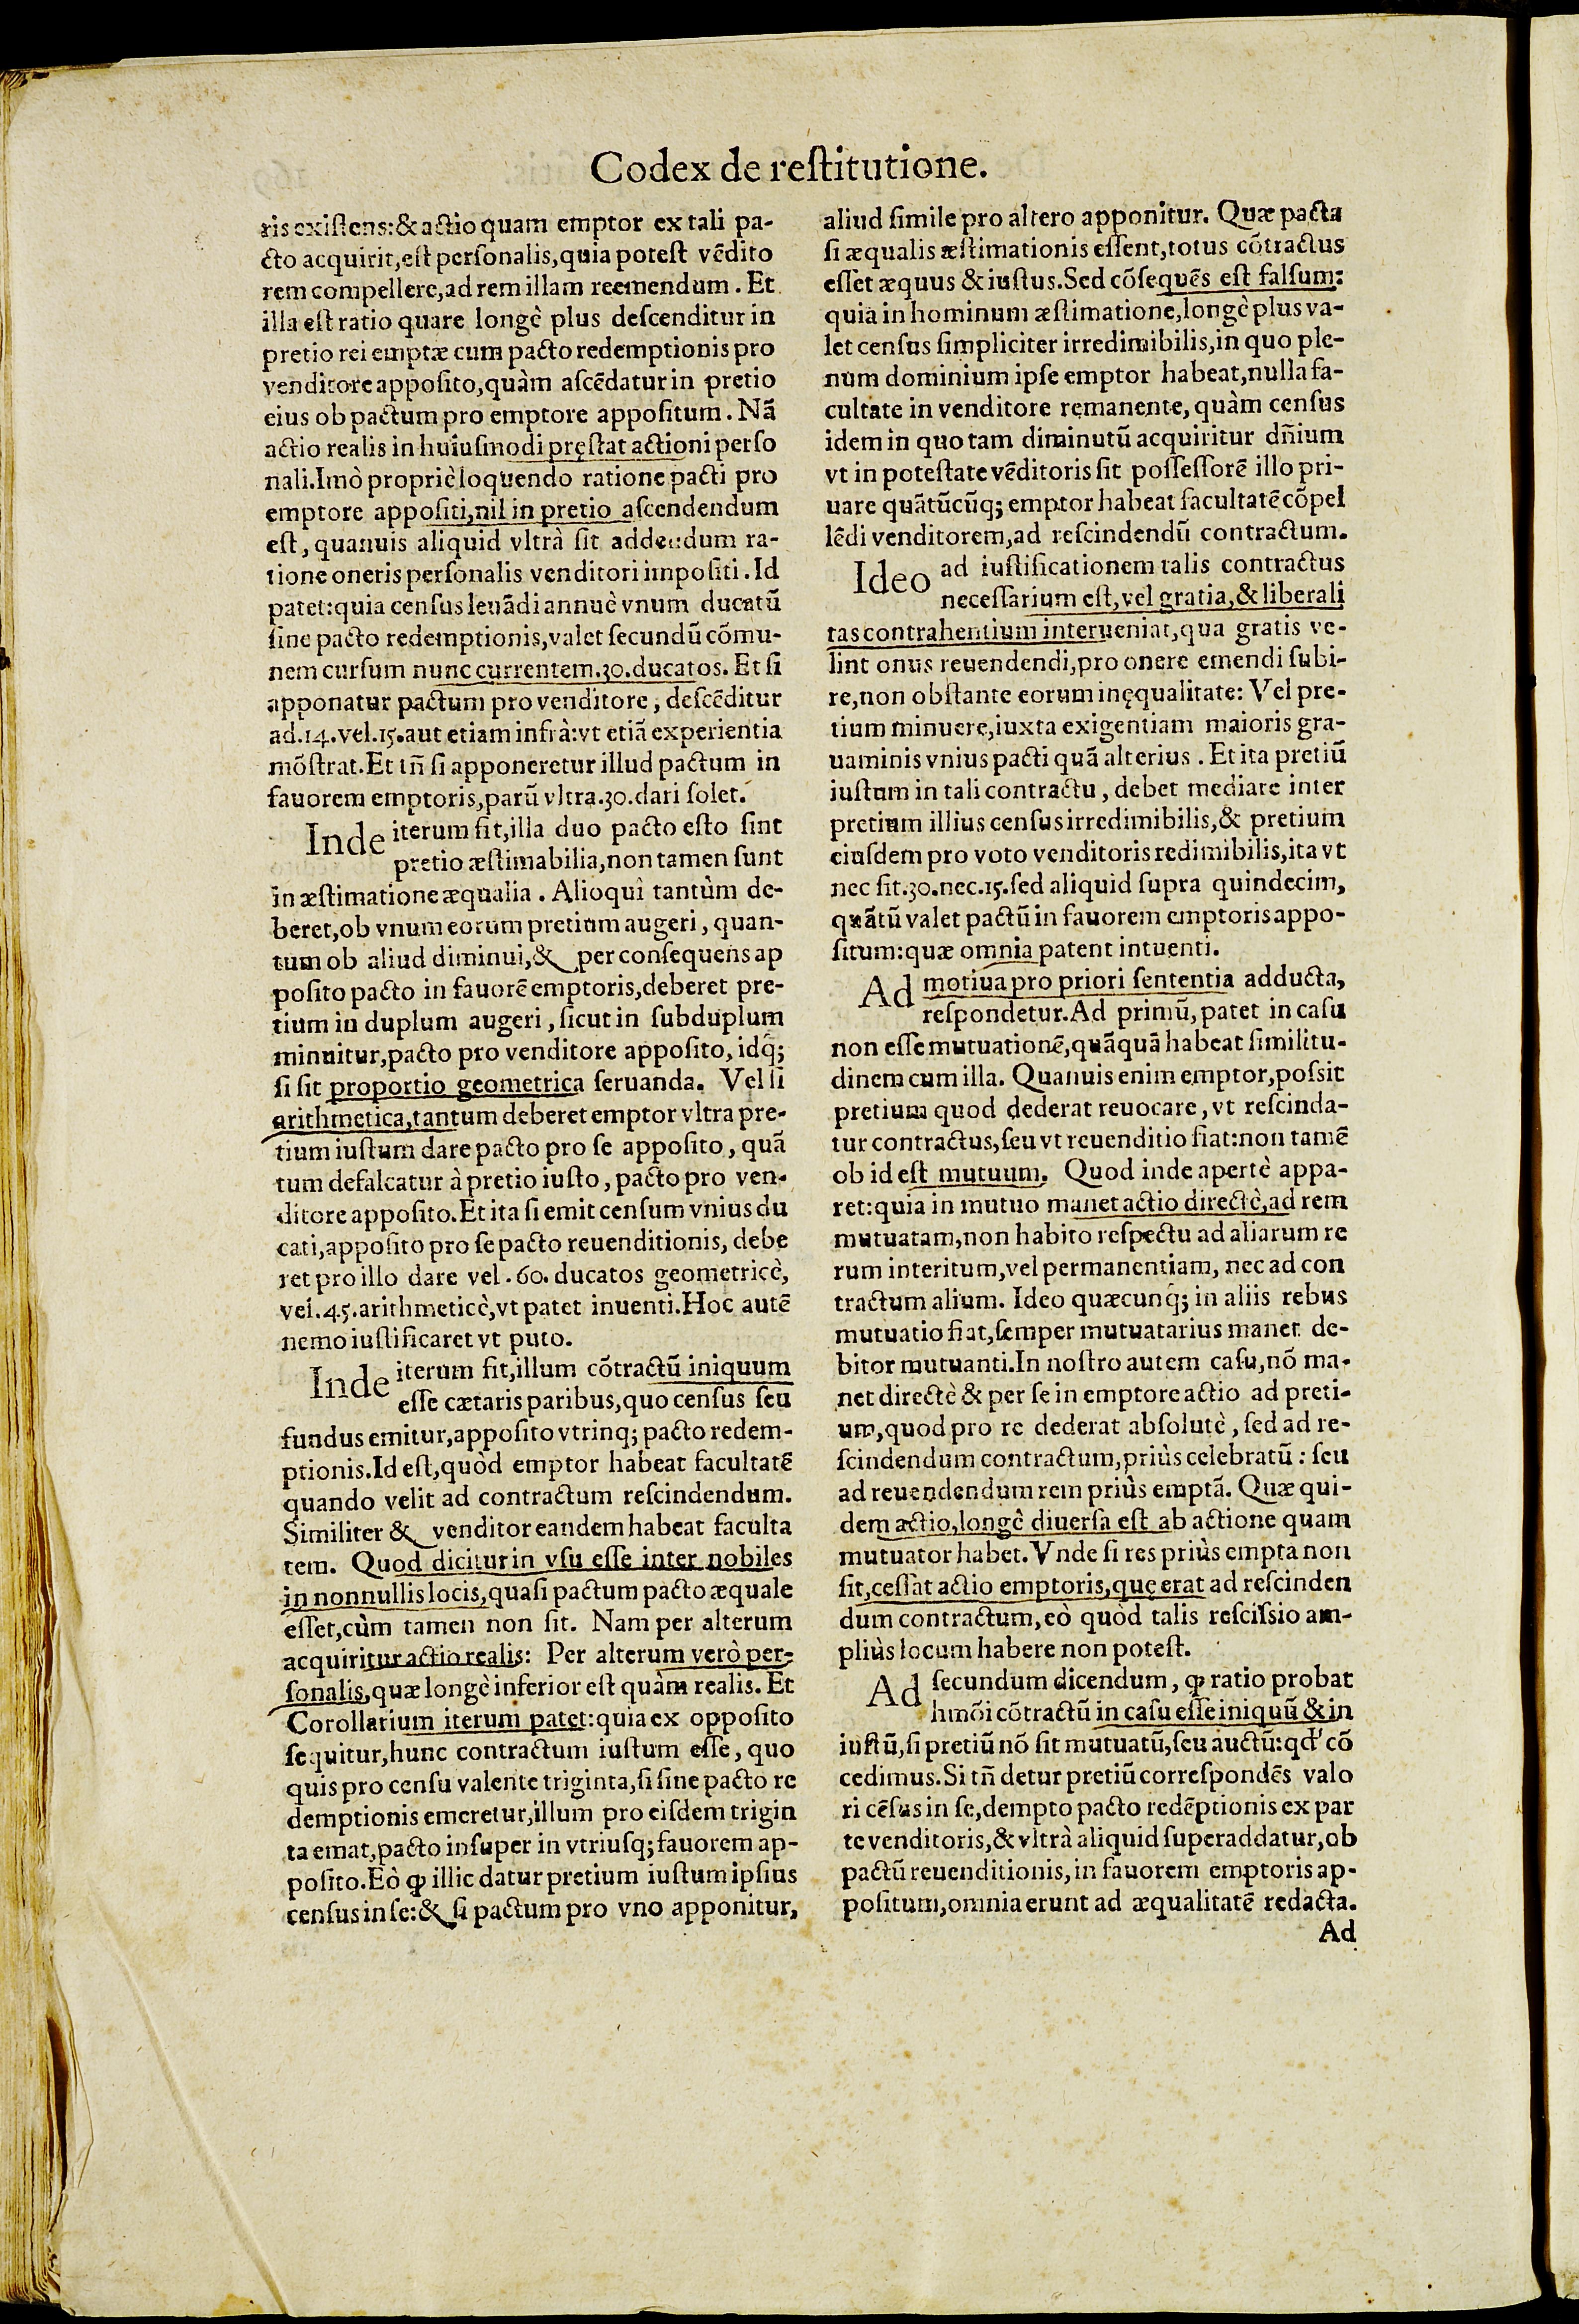 Codex de reſtitutione.
ris exiſtens:& actio quam emptor ex tali pa-
cto acquirit,eſt perſonalis,quia poteſt vẽdito
rem compellere,ad rem illam reemendum. Et
illa eſt ratio quare longè plus deſcenditur in
pretio rei emptæ cum pacto redemptionis pro
venditore appoſito,quàm aſcẽdatur in pretio
eius ob pactum pro emptore appoſitum. Nã
actio realis in huiuſmodi pręſtat actioni perſo
nali.Imò propriè loquendo ratione pacti pro
emptore appoſiti,nil in pretio aſcendendum
eſt, quanuis aliquid vltrà ſit addendum ra-
tione oneris perſonalis venditori impoſiti. Id
patet:quia cenſus leuãdi annuè vnum ducatũ
ſine pacto redemptionis,valet ſecundũ cõmu-
nem curſum nunc currentem.30.ducatos. Et ſi
apponatur pactum pro venditore, deſcẽditur
ad.14.vel.15.aut etiam infrà:vt etiã experientia
mõſtrat.Et tñ ſi apponeretur illud pactum in
fauorem emptoris,parũ vltra.30.dari ſolet.
Inde iterum fit,illa duo pacto eſto ſint
pretio æſtimabilia,non tamen ſunt
in æſtimatione æqualia. Alioquì tantùm de-
beret,ob vnum eorum pretium augeri, quan-
tum ob aliud diminui,& per conſequens ap
poſito pacto in fauorẽ emptoris,deberet pre-
tium in duplum augeri, ſicut in ſubduplum
minuitur,pacto pro venditore appoſito, idq́;
ſi ſit proportio geometrica ſeruanda. Vel ſi
arithmetica,tantum deberet emptor vltra pre-
tium iuſtum dare pacto pro ſe appoſito, quã
tum defalcatur à pretio iuſto, pacto pro ven-
ditore appoſito.Et ita ſi emit cenſum vnius du
cati,appoſito pro ſe pacto reuenditionis, debe
ret pro illo dare vel.60. ducatos geometricè,
vel.45.arithmeticè,vt patet inuenti.Hoc autẽ
nemo iuſtificaret vt puto.
Inde iterum fit,illum cõtractũ iniquum
eſſe cætaris paribus,quo cenſus ſeu
fundus emitur,appoſito vtrinq; pacto redem-
ptionis.Id eſt,quòd emptor habeat facultatẽ
quando velit ad contractum reſcindendum.
Similiter & venditor eandem habeat faculta
tem. Quod dicitur in vſu eſſe inter nobiles
in nonnullis locis,quaſi pactum pacto æquale
eſſet,cùm tamen non ſit. Nam per alterum
acquiritur actio realis: Per alterum verò per-
ſonalis,quæ longè inferior eſt quàm realis. Et
Corollarium iterum patet:quia ex oppoſito
ſequitur,hunc contractum iuſtum eſſe, quo
quis pro cenſu valente triginta,ſi ſine pacto re
demptionis emeretur,illum pro eiſdem trigin
ta emat,pacto inſuper in vtriuſq; fauorem ap-
poſito.Eò ꝙ illic datur pretium iuſtum ipſius
cenſus in ſe:& ſi pactum pro vno apponitur,
aliud ſimile pro altero apponitur. Quæ pacta
ſi æqualis æſtimationis eſſent,totus cõtractus
eſſet æquus & iuſtus.Sed cõſequẽs eſt falſum:
quia in hominum æſtimatione,longè plus va-
let cenſus ſimpliciter irredimibilis,in quo ple-
num dominium ipſe emptor habeat,nulla fa-
cultate in venditore remanente, quàm cenſus
idem in quo tam diminutũ acquiritur dñium
vt in poteſtate vẽditoris ſit poſſeſſorẽ illo pri-
uare quãtũcũq; emptor habeat facultatẽ cõpel
lẽdi venditorem,ad reſcindendũ contractum.
Ideo ad iuſtificationem talis contractus
neceſſarium eſt,vel gratia,& liberali
tas contrahentium interueniat,qua gratis ve-
lint onus reuendendi,pro onere emendi ſubi-
re,non obſtante eorum inęqualitate: Vel pre-
tium minuere,iuxta exigentiam maioris gra-
uaminis vnius pacti quã alterius. Et ita pretiũ
iuſtum in tali contractu, debet mediare inter
pretium illius cenſus irredimibilis,& pretium
eiuſdem pro voto venditoris redimibilis,ita vt
nec ſit.30.nec.15.ſed aliquid ſupra quindecim,
quãtũ valet pactũ in fauorem emptoris appo-
ſitum:quæ omnia patent intuenti.
Ad motiua pro priori ſententia adducta,
reſpondetur.Ad primũ,patet in caſu
non eſſe mutuationẽ,quãquã habeat ſimilitu-
dinem cum illa. Quanuis enim emptor,poſsit
pretium quod dederat reuocare, vt reſcinda-
tur contractus,ſeu vt reuenditio fiat:non tamẽ
ob id eſt mutuum. Quod inde apertè appa-
ret:quia in mutuo manet actio directè,ad rem
mutuatam,non habito reſpectu ad aliarum re
rum interitum,vel permanentiam, nec ad con
tractum alium. Ideo quæcunq́; in aliis rebus
mutuatio fiat,ſemper mutuatarius manet de-
bitor mutuanti.In noſtro autem caſu,nõ ma-
net directè & per ſe in emptore actio ad preti-
um,quod pro re dederat abſolutè, ſed ad re-
ſcindendum contractum,priùs celebratũ: ſeu
ad reuendendum rem priùs emptã. Quæ qui-
dem actio,longè diuerſa eſt ab actione quam
mutuator habet. Vnde ſi res priùs empta non
ſit,ceſſat actio emptoris,quę erat ad reſcinden
dum contractum, eò quòd talis reſciſsio am-
pliùs locum habere non poteſt.
Ad ſecundum dicendum, ꝙ ratio probat
hmõi cõtractũ in caſu eſſe iniquũ & in
iuſtũ,ſi pretiũ nõ ſit mutuatũ,ſeu auctũ:qđ cõ
cedimus.Si tñ detur pretiũ correſpondẽs valo
ri cẽſus in ſe,dempto pacto redẽptionis ex par
te venditoris,& vltrà aliquid ſuperaddatur,ob
pactũ reuenditionis,in fauorem emptoris ap-
poſitum,omnia erunt ad æqualitatẽ redacta.
Ad